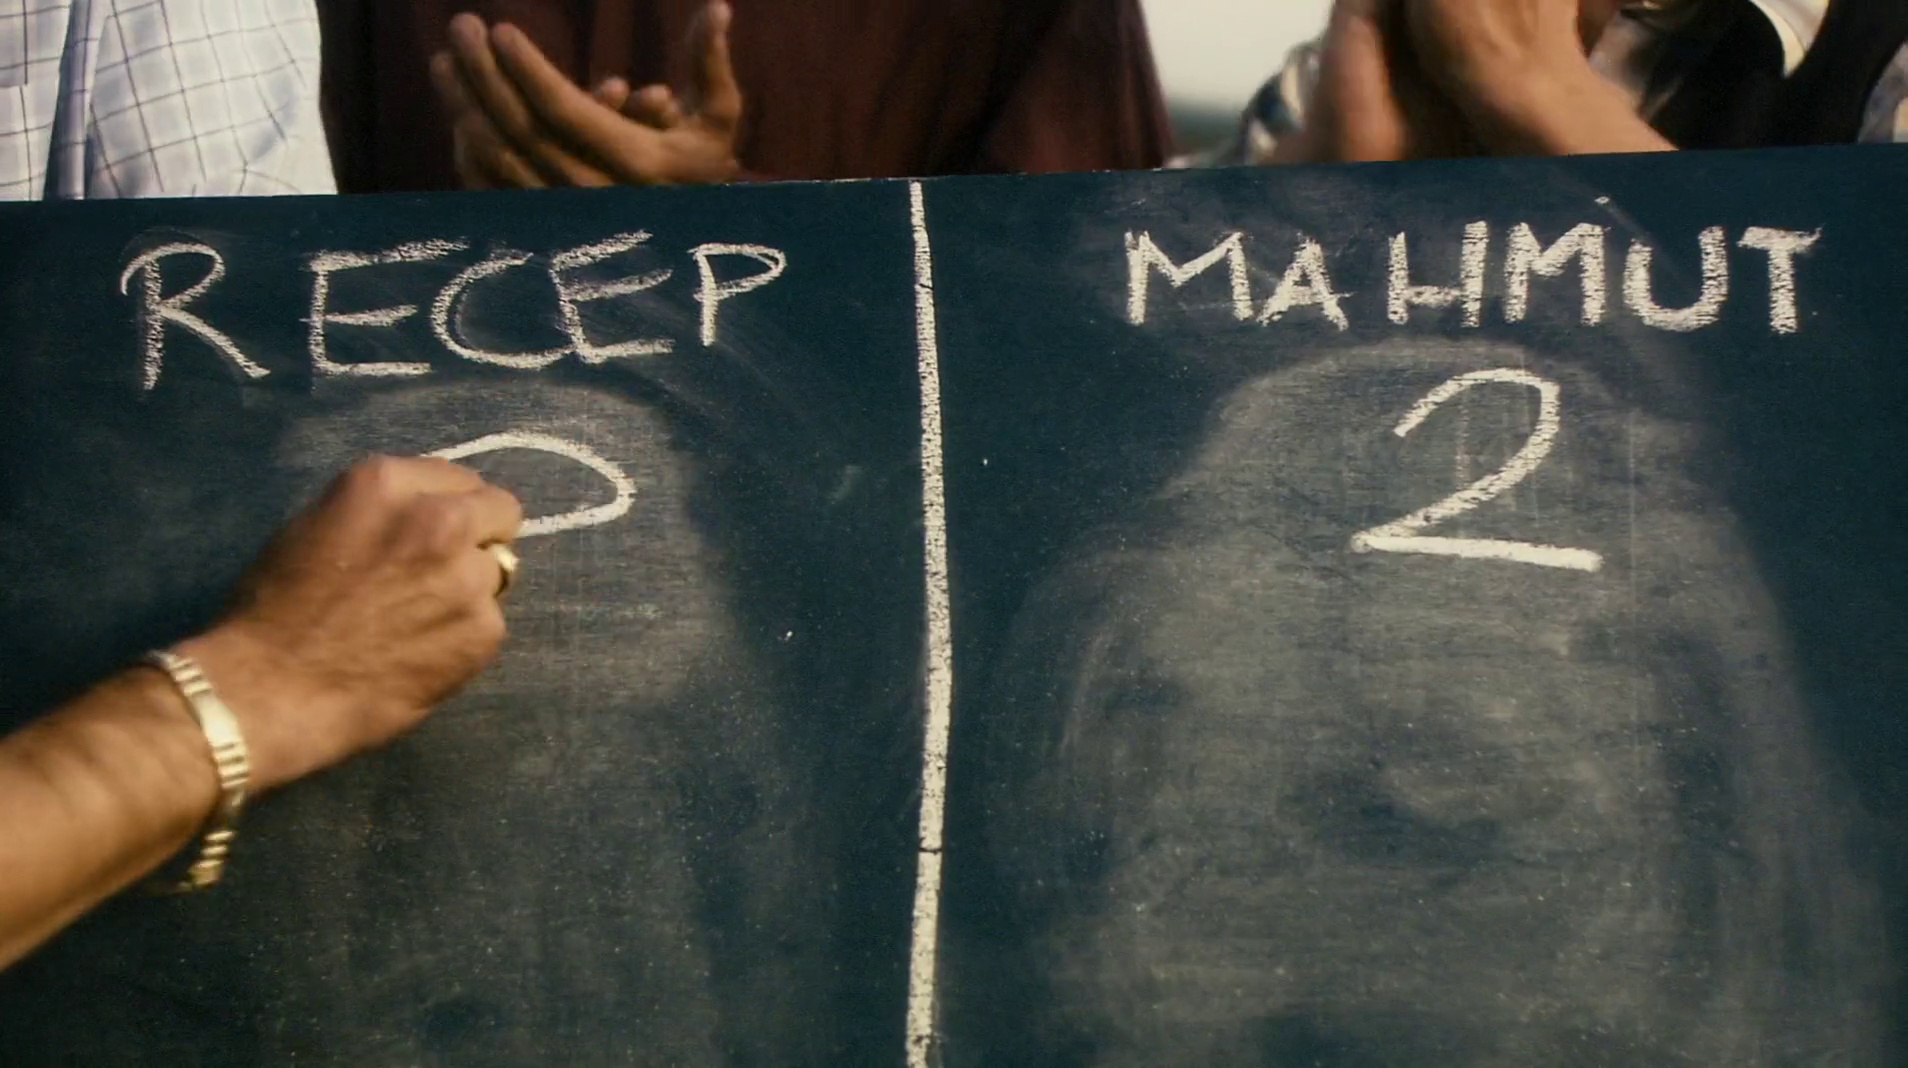 RECEP MAHMUT
2